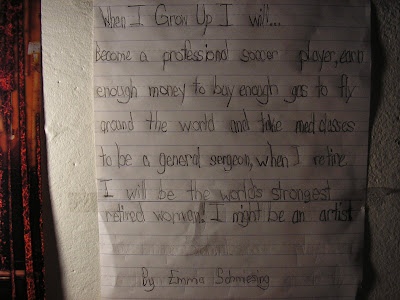 When I Grow Up I will...
become a professional soccer player, earn
enough money to buy enough gas to fly
around the world and take med classes
to be a general sergeon, when I retire
I will be the world's strongest
retired woman! I might be an artist
By Emma